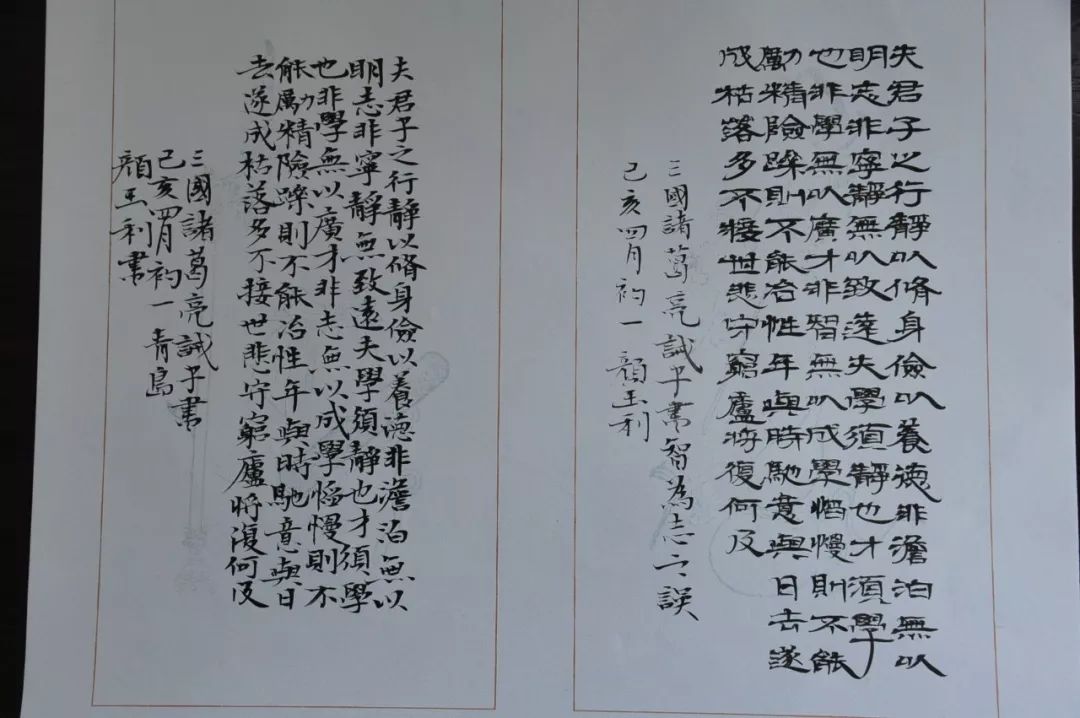 夫君子之行靜以脩身儉以養德非澹泊無以
明志非寧靜無以致遠夫學須靜也才須學
也非學無以廣才非智無以成學慆慢則不能
勵精險躁則不能治性年與時馳意與日去遂
成枯落多不接世悲守窮廬將復何及
三國諸葛亮誡子書智為志之誤
己亥四月初一顏玉利
夫君子之行靜以脩身儉以養德非澹泊無以
明志非寧靜無致遠夫學須靜也才須學
也非學無以廣才非志無以成學慆慢則不
能勵精險躁則不能治性年與時馳意與日
去遂成枯落多不接世悲守窮廬將復何及
三國諸葛亮誡子書
己亥四月初一青島
顏玉利書